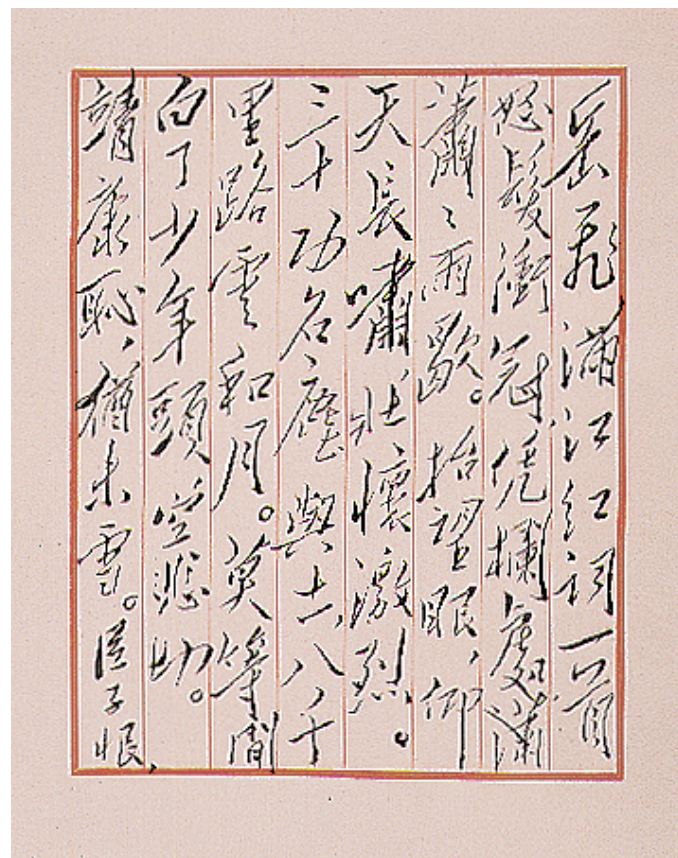 岳飛滿江紅詞一首
怒髮衝冠,凭欄處瀟
瀟〻雨歇。抬望眼,仰
天長嘯,壯懷激烈。
三十功名塵與土,八千
里路雲和月。莫等閒
白了少年頭空悲切。
靖康恥,猶未雪。臣子恨,